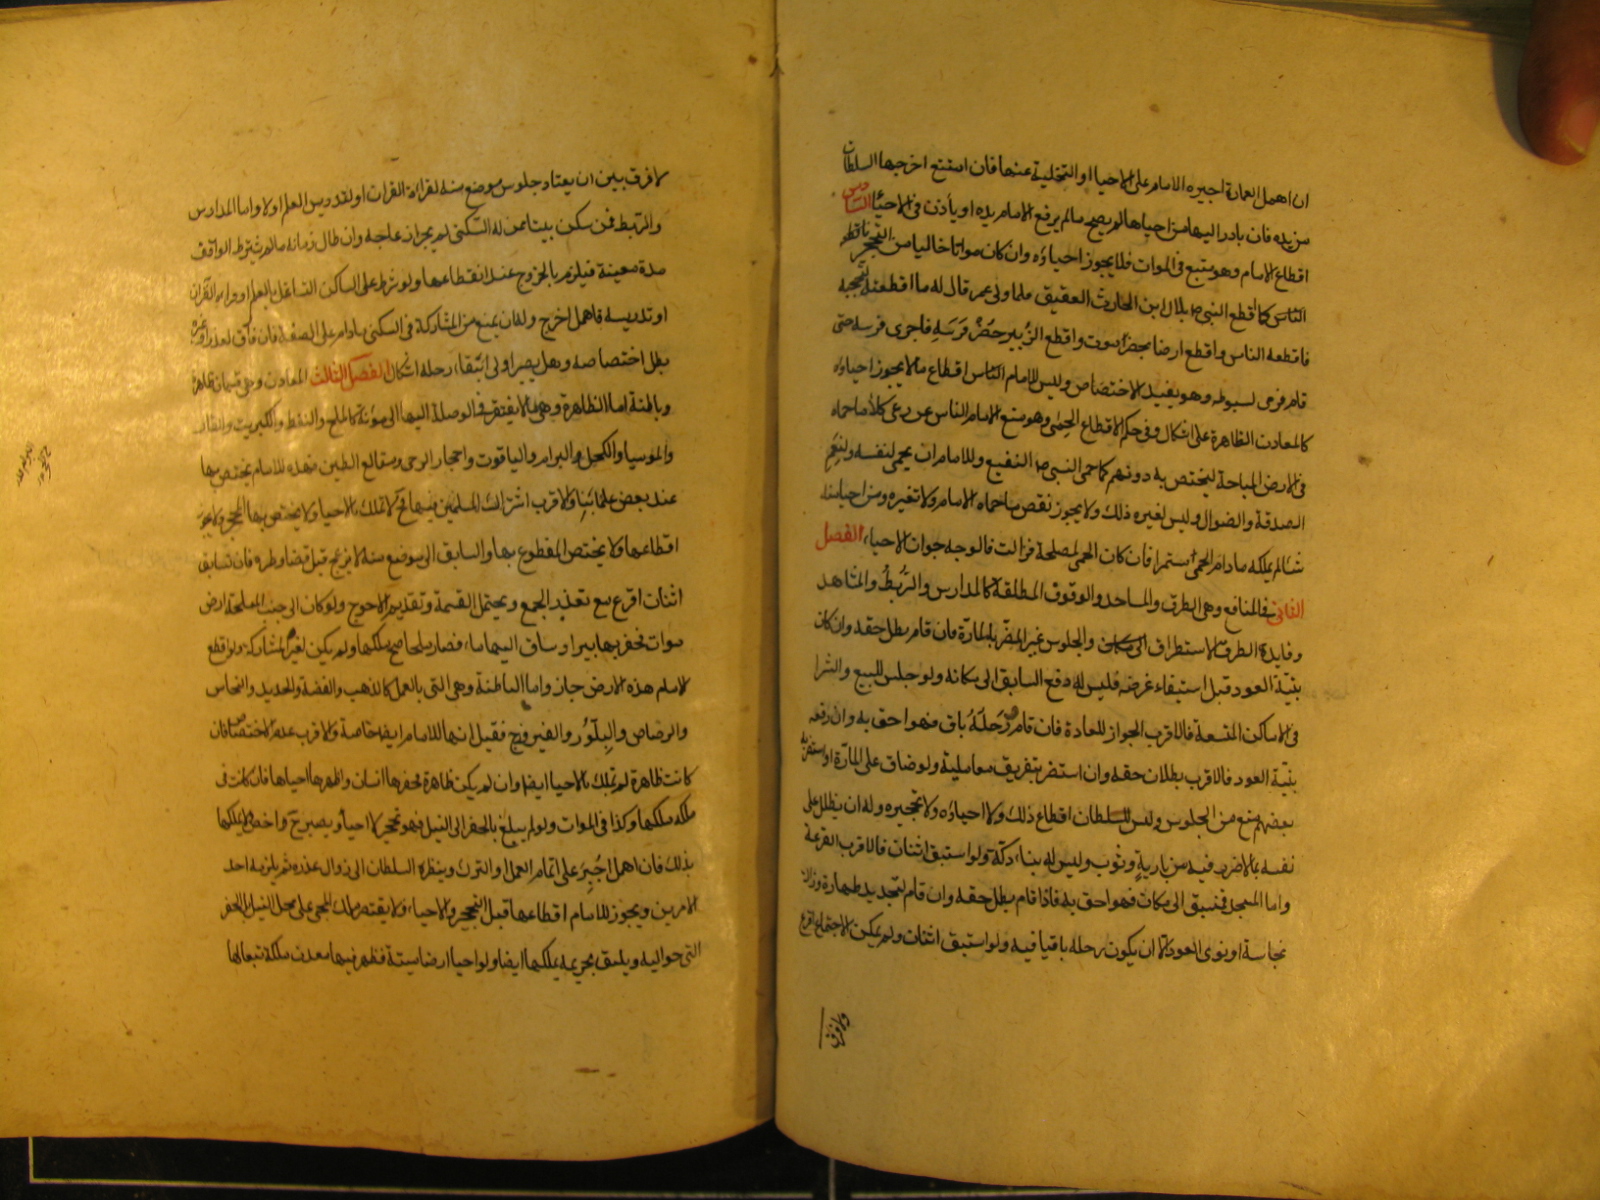 ان اهمل العمارة اجبره الامام على الاحيا او التخلية عنها فان امتنع اخرجها السلطان
من يده فان بادر اليها من احياها لم يصح مالم يرفع الامام يده او يأذن فى الاحيا السادس
اقطاع الامام وهو متبع فى الموات فلا يجوز احياؤه وان كان مواتا خاليا من التحجر كاقطع
النبى ص بلال ابن الحارث العقيق فلما ولى عمر قال له ما اقطعته لتحجبه
فاقطعه الناس واقطع ارضا بحضرموت واقطع الزبير حضر فرسه فاجرى فرسه حتى
قام فرمى بسوطه وهو يفيد الاختصاص وليس للامام اقطاع مالا يجوز احياؤه
كالمعادن الظاهرة على اشكال وفى حكم الاقطاع الحمى وهو منع الامام الناس عن رعى كلأ ما حماه
فى الارض المباحة ليختص به دونهم كما حمى النبى ص النقيع وللامام ان يحمى لنفسه ولنعم
الصدقة والضوال وليس لغيره ذلك ولا يجوز نقض ما حماه الامام ولا تغييره ومن احيا منه
شئالم يملكه مادام الحمى مستمرا فان كان الحمى لمصلحة فزالت فالوجه جواز الاحياء الفصل
الثانى فى المنافع وهى الطرق والمساجد والوقوف المطلقة كالمدارس والربط والمشاهد
وفايدة الطرق الاستطراق والجلوس غير المضر بالمارة فان قام بطل حقه وان كان
بنية العود قبل استيفاء غرضه فليس له دفع السابق الى مكانه ولو جلس للبيع والشرا
فى الاماكن المتسعة فالاقرب الجواز للعادة فان قام ورحله باق فهو احق به وان رفعه
بنية العود فالاقرب بطلان حقه وان استضر بتفريق معامليه ولو ضاق على المارة او استضر به
بعضهم منع من الجلوس وليس للسلطان اقطاع ذلك ولا احياؤه ولا تحجيره وله ان يظلل على
نفسه بما لا ضرر فيه من بارية وثوب وليس له بناء دكة ولو استبق اثنان فالاقرب القرعة
واما المسجد فمن سبق الى مكان فهو احق به فاذا قام بطل حقه وان قام لتجديد طهارة وازالة
نجاسة او نوى العود الا ان يكون رحله باقيا فيه ولو استبق اثنان ولم يمكن الاجتماع اقرع
ولا فرق
لا فرق بين ان يعتاد جلوس موضع منه لقراءة القران او لتدريس العلم اولا واما المدارس
والربط فمن سكن بيتا ممن له السكنى لم يجز ازعاجه وان طال زمانه مالم يشترط الواقف
مدة معينة فيلزم بالخروج عند انقضائها ولو شرط على الساكن التشاغل بالعلم او قراءة القرآن
او تدريسه فاهمل اخرج وله ان يمنع من المشاركة فى السكنى مادام على الصفة فان فارق لعذر
بطل اختصاصه وهل يصير اولى ببقاء رحله اشكال الفصل الثالث المعادن وهى قسمان ظاهرة
وباطنة اما الظاهرة وهى مالا يفتقر فى الوصلة اليها الى مؤنة كالملح والنفط والكبريت والقار
والموميا والكحل والبرام والياقوت واحجار الرحى ومقالع الطين فهذه للامام يختص بها
عند بعض علمائنا والاقرب اشتراك المسلمين فيها فح لا تملك بالاحيا ولا يختص بها المحجر ولا يجوز
اقطاعها ولا يختص المقطوع بها والسابق الى موضع منه لا يزعج قبل قضا وطره فان تسابق
اثنان اقرع مع تعذر الجمع ويحتمل القسمة وتقديم الاحوج ولو كان الى جنب المملحة ارض
موات فحفر بها بيرا وساق اليها ماء فصار ملحا صح ملكها ولم يكن لغيره المشاركة ولو اقطع
الامام هذه الارض جاز واما الباطنة وهى التى بالعمل كالذهب والفضة والحديد والنحاس
والرصاص والبلور والفيروزج فقيل انها للامام ايضا خاصة والاقرب عدم الاختصاص فان
كانت ظاهرة لم تملك بالاحيا ايضا وان لم يكن ظاهرة فحفرها انسان واظهرها احياها فان كانت فى
ملكه ملكها وكذا فى الموات ولو لم يبلغ بالحفر الى النيل فهو تحجير لا احياء ويصير ح واخص ولا يملكها
بذلك فان اهمل اجبر على اتمام العمل او الترك وينظره السلطان الى زوال عذره ثم يلزمه احد
الامرين ويجوز للامام اقطاعها قبل التحجير والاحياء ولا يقتصر ملك المحيى على محل النيل بل الحفر
التى حواليه ويليق بحريمه يملكها ايضا ولو احيا ارضا ميتة فظهر فيها معدن ملكه تبعا لها